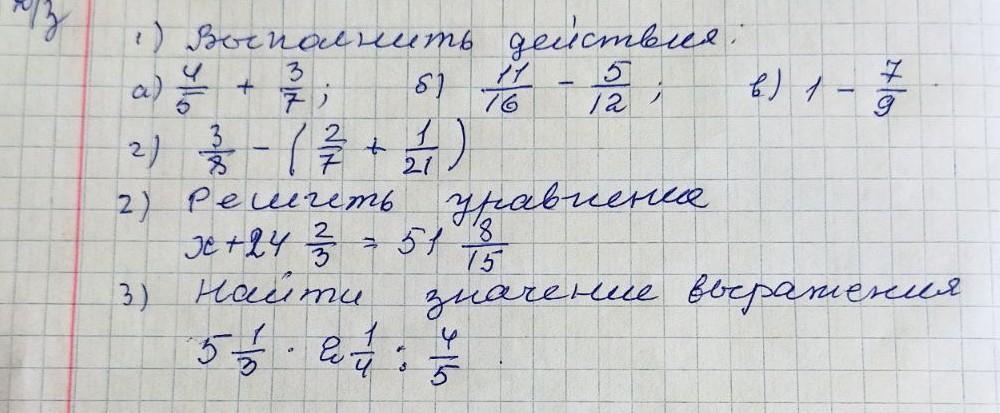 д/з
1) Выполнить действия:
а) 4/5 + 3/7; б) 11/16 - 5/12; в) 1 - 7/9
г) 3/8 - (2/7 + 1/21)
2) Решить уравнения
x + 24 2/3 = 51 8/15
3) Найти значение выражения
5 1/3 · 2 1/4 : 4/5